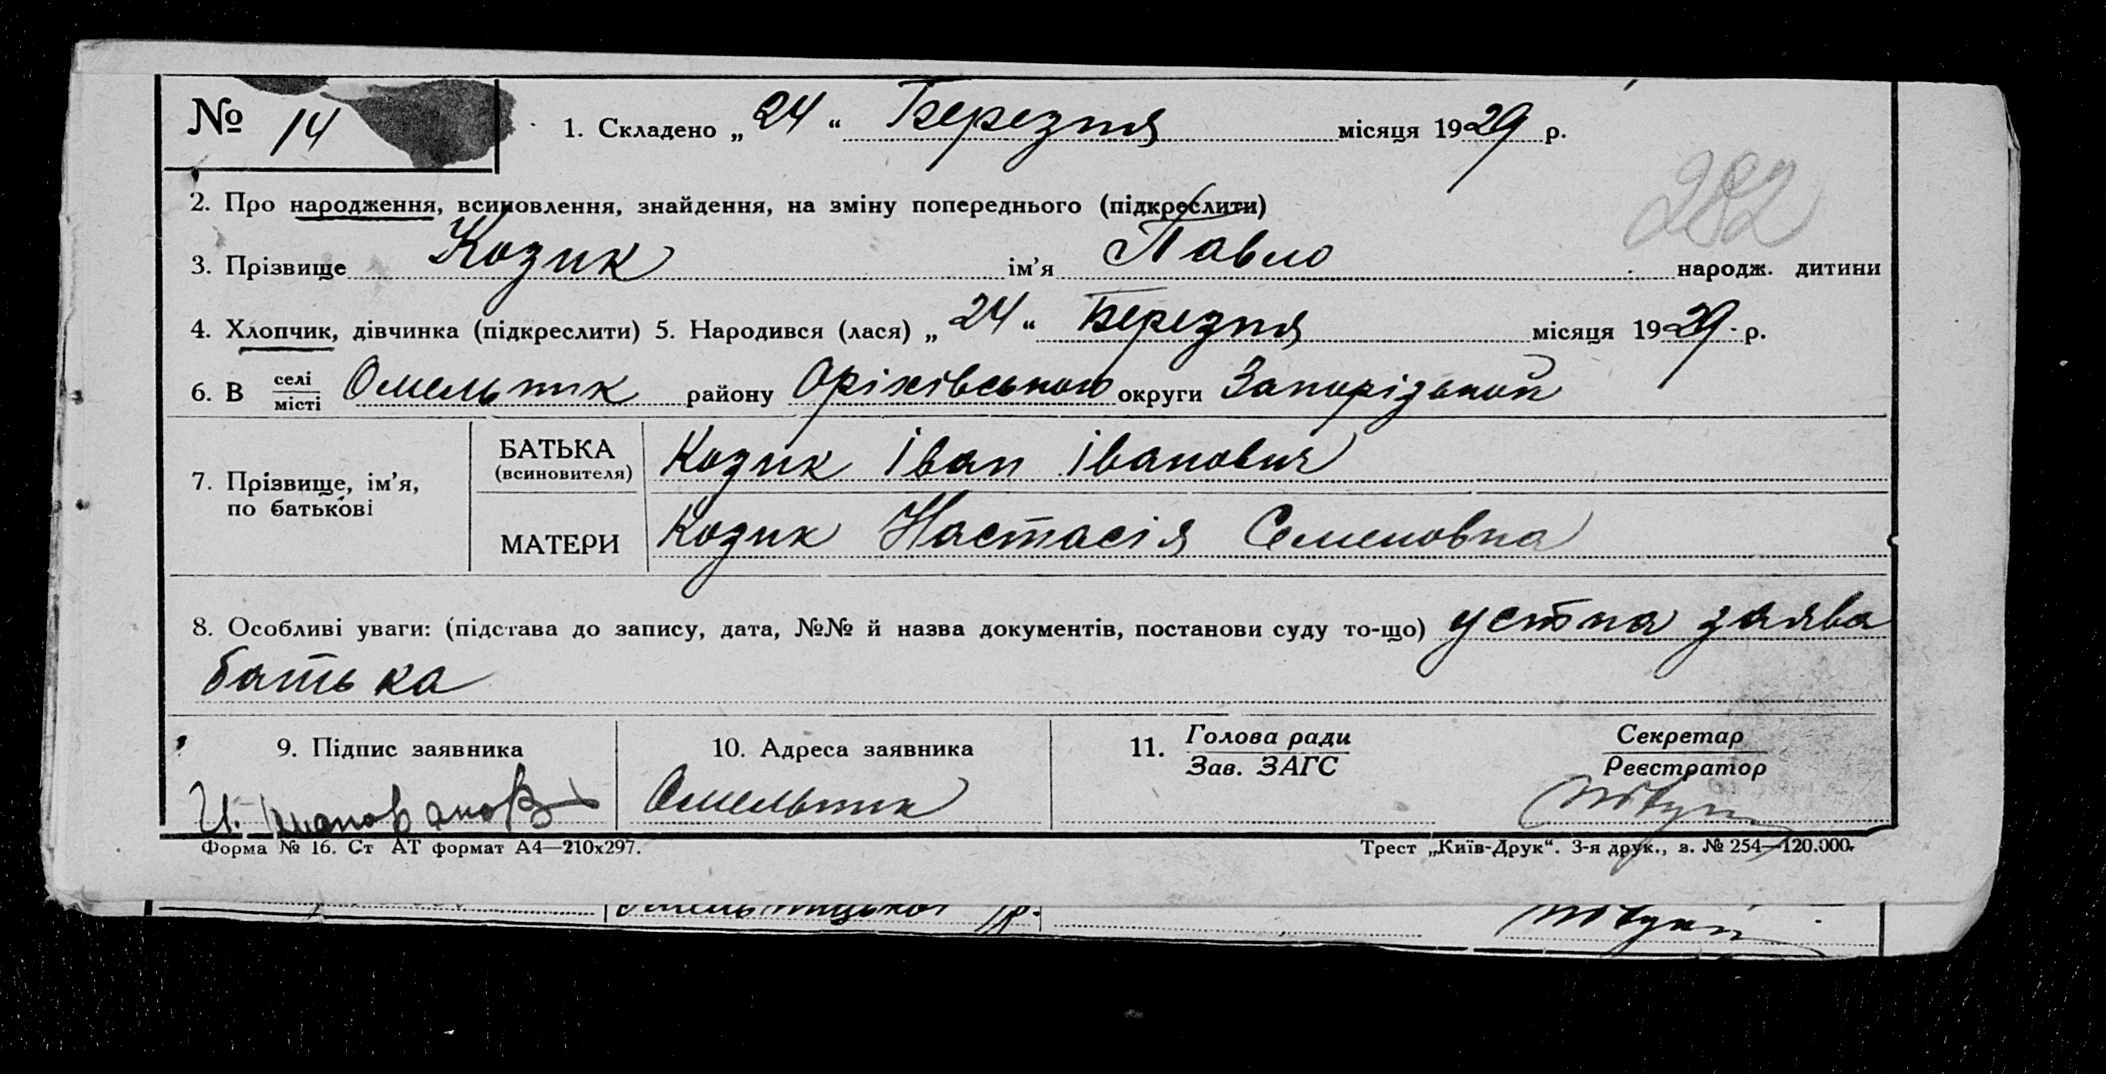 № 14
1. Складено „ 24 “ Березня місяця 1929 р.
282
2. Про народження, всиновлення, знайдення, на зміну попереднього (підкреслити)
3. Прізвище Козик ім’я Павло народж. дитини
4. Хлопчик, дівчинка (підкреслити) 5. Народився (лася) „ 24 “ Березня місяця 1929 р.
6. В селі
місті Омельник району Оріхівського округи Запорізької
7. Прізвище, ім’я,
по батькові
БАТЬКА
(всиновителя) Козик Іван Іванович
МАТЕРИ Козик Настасія Семеновна
8. Особливі уваги: (підстава до запису, дата, №№ й назва документів, постанови суду то-що) устна заява
батька
9. Підпис заявника
10. Адреса заявника
Омельник
11. Голова ради
Зав. ЗАГС
Секретар
Реєстратор
Форма № 16. Ст АТ формат А4—210х297.
Трест „Київ-Друк“. 3-я друк., з. № 254—120.000.